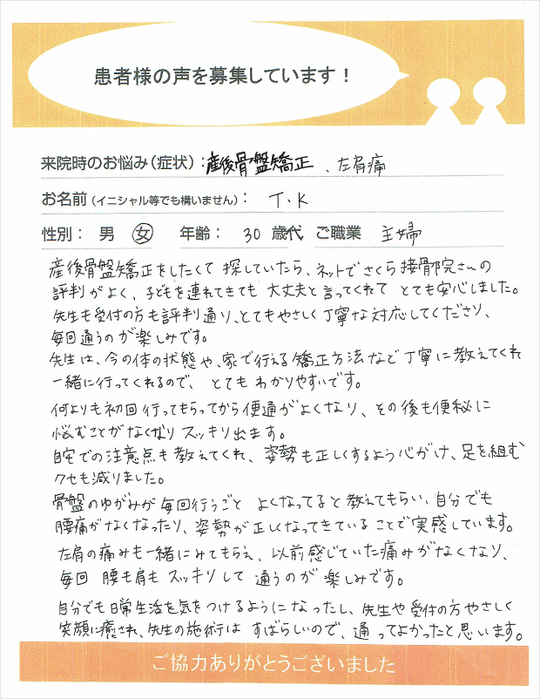 患者様の声を募集しています！
来院時のお悩み（症状）：産後骨盤矯正、左肩痛
お名前（イニシャル等でも構いません）： T・K
性別： 男 女 年齢： 30 歳代 ご職業 主婦
産後骨盤矯正をしたくて探していたら、ネットでさくら接骨院さんの
評判がよく、子どもを連れてきても大丈夫と言ってくれてとても安心しました。
先生も受付の方も評判通り、とてもやさしく丁寧な対応してくださり、
毎回通うのが楽しみです。
先生は、今の体の状態や、家で行える矯正方法など丁寧に教えてくれ
一緒に行ってくれるので、とてもわかりやすいです。
何よりも初回行ってもらってから便通がよくなり、その後も便秘に
悩むことがなくなりスッキリ出ます。
自宅での注意点も教えてくれ、姿勢も正しくするよう心がけ、足を組む
クセも減りました。
骨盤のゆがみが毎回行うごとよくなってると教えてもらい、自分でも
腰痛がなくなったり、姿勢が正しくなってきていることで実感しています。
左肩の痛みも一緒にみてもらえ、以前感じていた痛みがなくなり、
毎回腰も肩もスッキリして通うのが楽しみです。
自分でも日常生活を気をつけるようになったし、先生や受付の方やさしく
笑顔に癒され、先生の施術はすばらしいので、通ってよかったと思います。
ご協力ありがとうございました